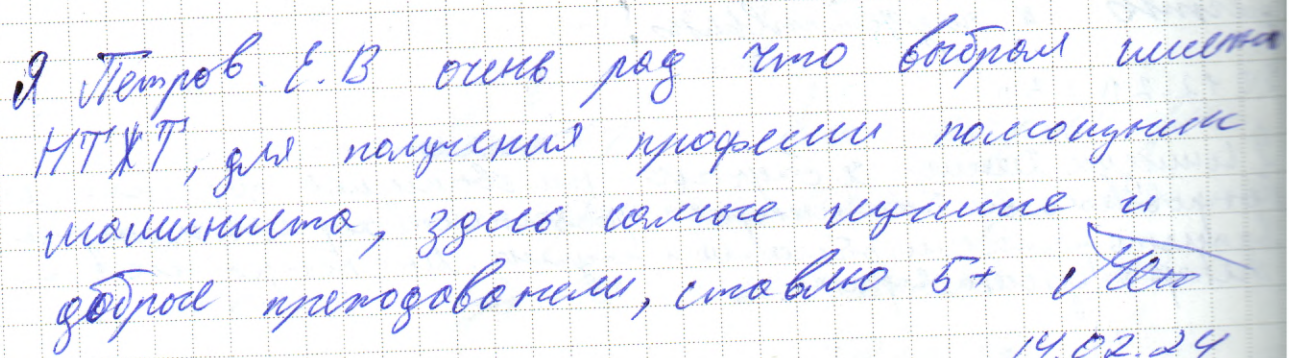 Я Петров. Е.В очень рад что выбрал именно
НТЖТ, для получения професии помощник
машиниста, здесь самые лучшие и
доброые преподаватели, ставлю 5+
14.02.24